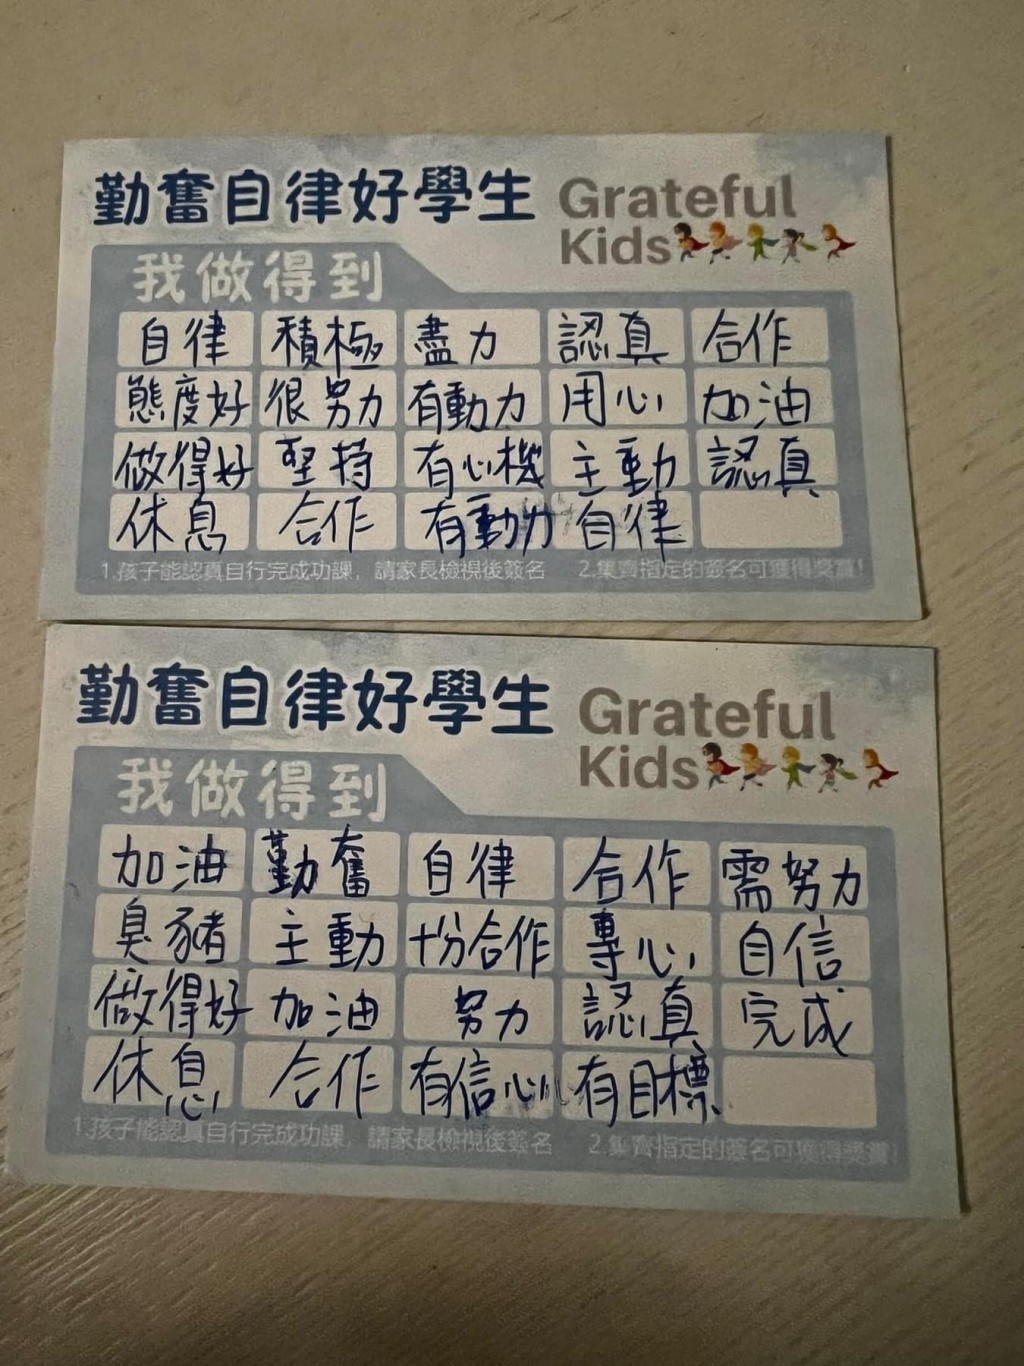 勤奮自律好學生 Grateful
Kids
我做得到
自律 積極 盡力 認真 合作
態度好 很努力 有動力 用心 加油
做得好 堅持 有心機 主動 認真
休息 合作 有動力 自律
1.孩子能認真自行完成功課，請家長檢視後簽名 2.集齊指定的簽名可獲得獎賞!
勤奮自律好學生 Grateful
Kids
我做得到
加油 勤奮 自律 合作 需努力
臭豬 主動 十份合作 專心 自信
做得好 加油 努力 認真 完成
休息 合作 有信心 有目標
1.孩子能認真自行完成功課，請家長檢視後簽名 2.集齊指定的簽名可獲得獎賞!